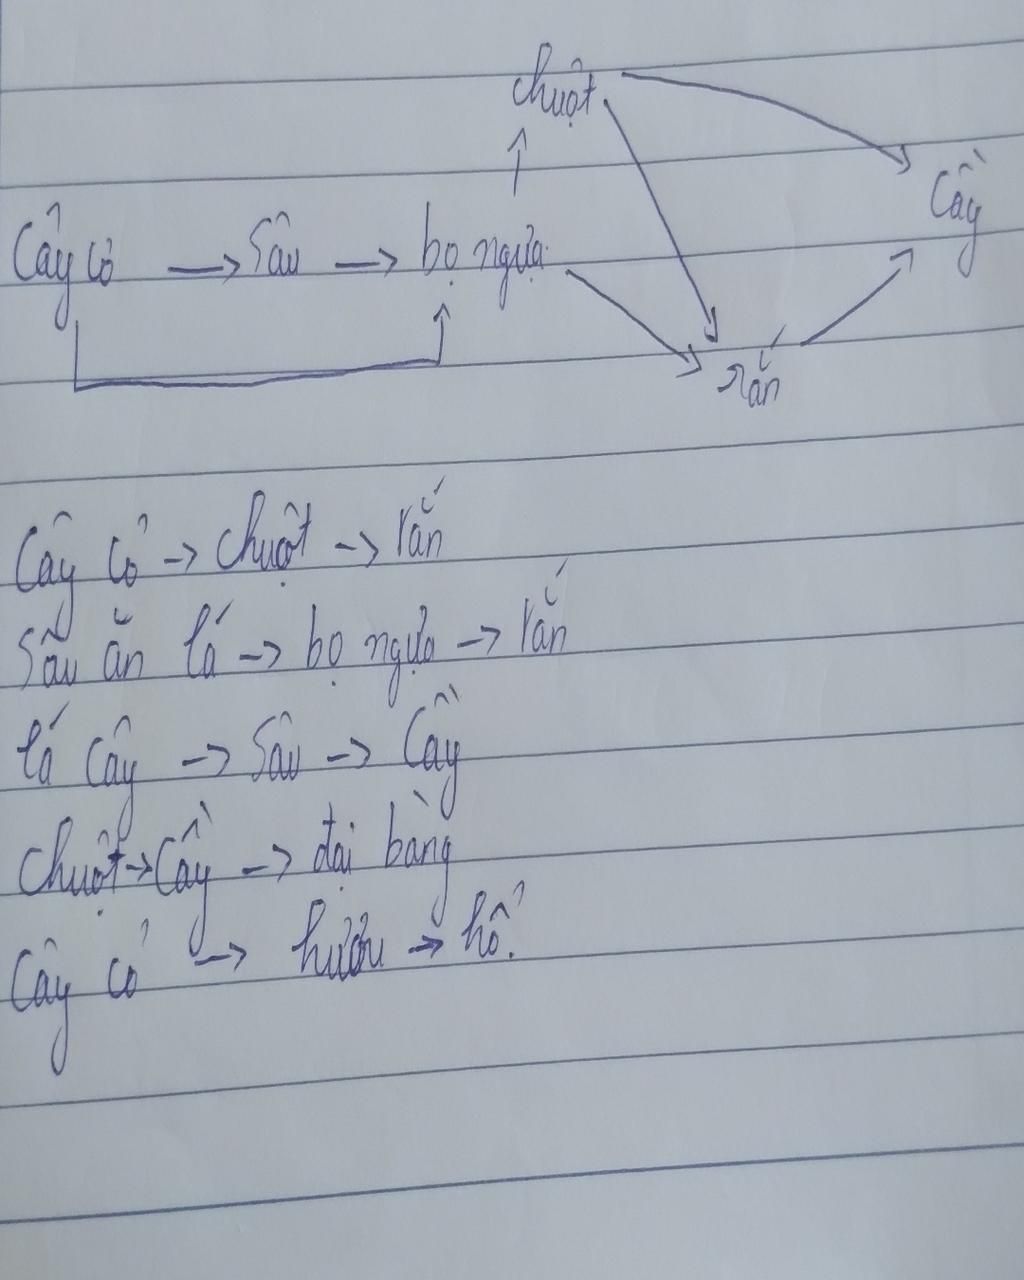 chuột
Cầy
Cây cỏ → Sâu → bọ ngựa
rắn
Cây cỏ → chuột → rắn
Sâu ăn lá → bọ ngựa → rắn
lá cây → Sâu → Cầy
Chuột → Cầy → đại bàng
Cây cỏ → hươu → hổ.